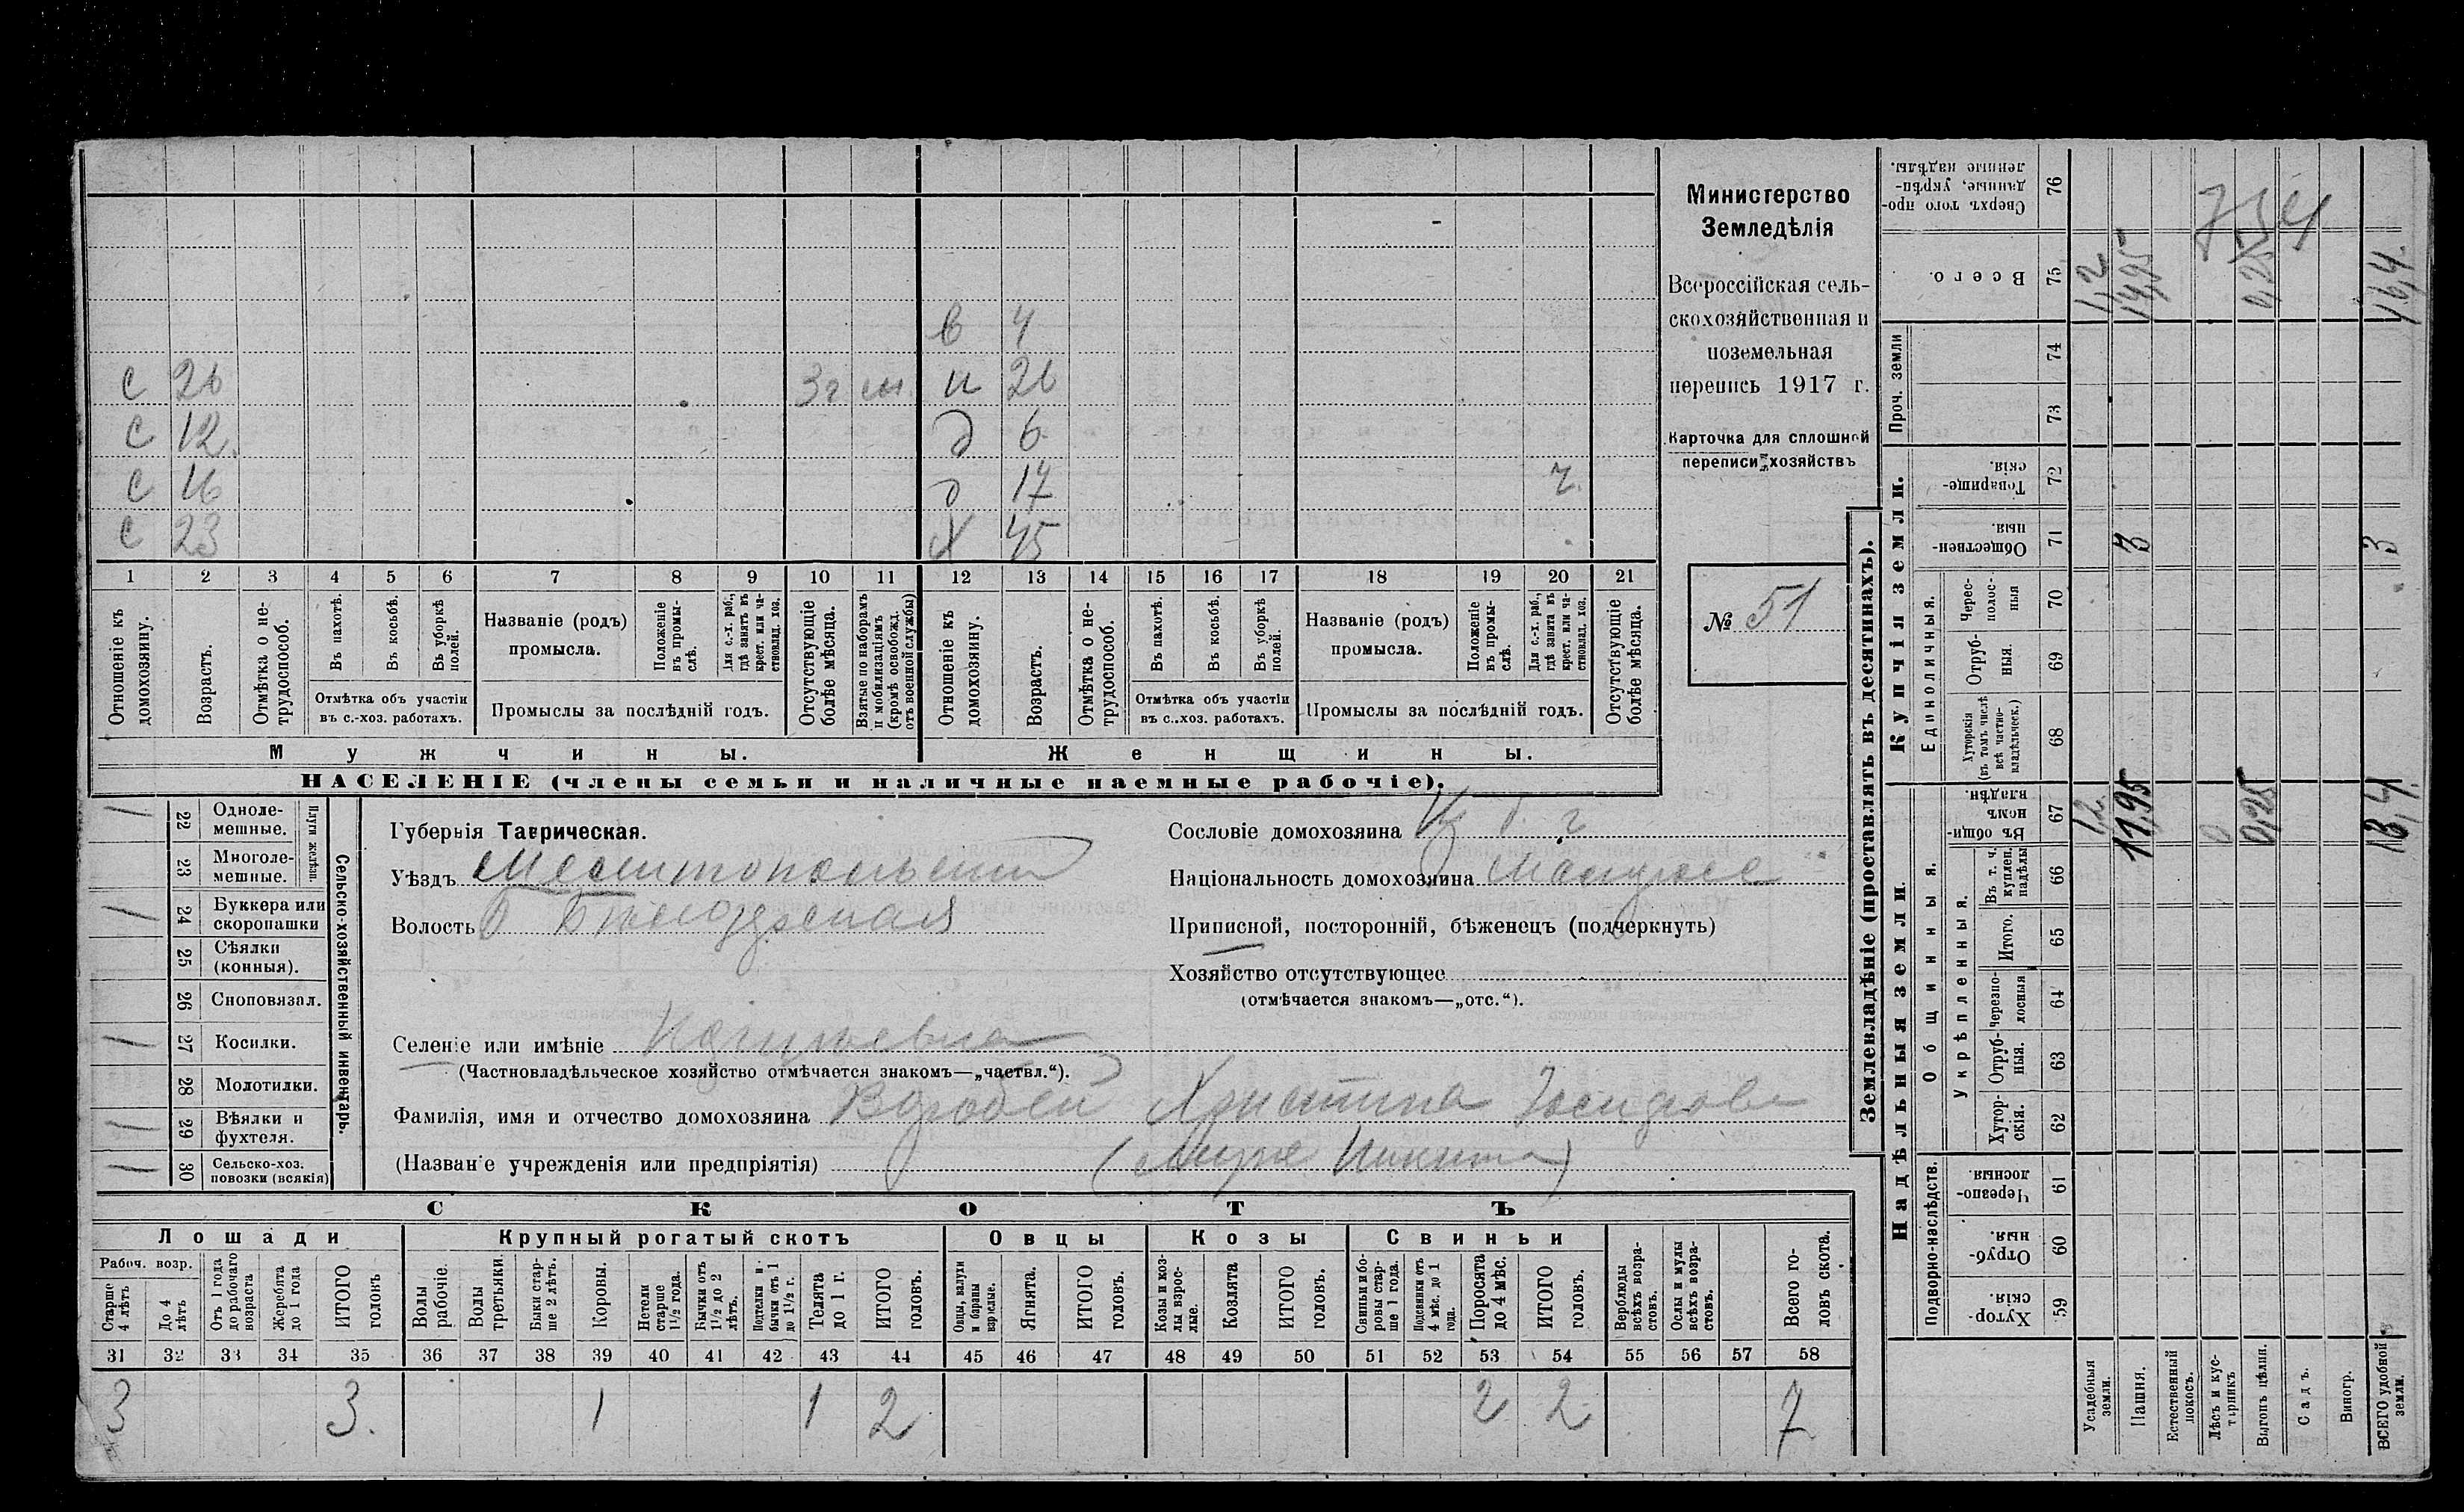 Министерство
Земледѣлія
Всероссійская сель-
скохозяйственная и
поземельная
перепись 1917 г.
Карточка для сплошной
переписи хозяйствъ
№ 51
в 4
с 26 3 г и 26
с 12 д 6
с 16 д 17
с 23 Х 45
1 2 3 4 5 6 7 8 9 10 11 12 13 14 15 16 17 18 19 20 21
Отношеніе къ домохозяину.
Возрастъ.
Отмѣтка о не-трудоспособ.
Въ пахотѣ.
Въ косьбѣ.
Въ уборкѣ полей.
Отмѣтка объ участіи
въ с.-хоз. работахъ.
Названіе (родъ)
промысла.
Положеніе въ промы-слѣ.
Для с.-х. раб., гдѣ занятъ въ крест. или ча-стновлад. хоз.
Промыслы за послѣдній годъ.
Отсутствующіе болѣе мѣсяца.
Взятые по наборамъ и мобилизаціямъ (кромѣ освобожд. отъ военной службы)
Отношеніе къ домохозяину.
Возрастъ.
Отмѣтка о не-трудоспособ.
Въ пахотѣ.
Въ косьбѣ.
Въ уборкѣ полей.
Отмѣтка объ участіи
въ с.-хоз. работахъ.
Названіе (родъ)
промысла.
Положеніе въ промы-слѣ.
Для с.-х. раб., гдѣ занята въ крест. или ча-стновлад. хоз.
Промыслы за послѣдній годъ.
Отсутствующіе болѣе мѣсяца.
Мужчины. Женщины.
НАСЕЛЕНІЕ (члены семьи и наличные наемные рабочіе).
Сельско-хозяйственный инвентарь.
Плуги желѣзн.
/ 22 Одноле-мешные.
23 Многоле-мешные.
/ 24 Буккера или скоропашки
25 Сѣялки (конныя).
26 Сноповязал.
/ 27 Косилки.
28 Молотилки.
/ 29 Вѣялки и фухтеля.
/ 30 Сельско-хоз. повозки (всякія)
Губернія Таврическая.
Уѣздъ Мелитопольскій
Волость
Селеніе или имѣніе
(Частновладѣльческое хозяйство отмѣчается знакомъ—„частвл.“).
Фамилія, имя и отчество домохозяина Воробей Христина
(Названіе учрежденія или предпріятія) (Никита)
Сословіе домохозяина
Національность домохозяина Малорос
Приписной, посторонній, бѣженецъ (подчеркнуть)
Хозяйство отсутствующее
(отмѣчается знакомъ—„отс.“).
СКОТЪ
Лошади Крупный рогатый скотъ Овцы Козы Свиньи
Рабоч. возр.
Старше 4 лѣтъ
До 4 лѣтъ
Отъ 1 года до рабочаго возраста
Жеребята до 1 года
ИТОГО головъ
Волы рабочіе.
Волы третьяки.
Быки стар-ше 2 лѣтъ.
Коровы.
Нетели старше 1½ года.
Бычки отъ 1½ до 2 лѣтъ.
Подтелки и бычки отъ 1 до 1½ г.
Телята до 1 г.
ИТОГО головъ.
Овцы, валухи и бараны взрослые.
Ягнята.
ИТОГО головъ.
Козы и коз-лы взрос-лые.
Козлята
ИТОГО головъ.
Свиньи и бо-ровы стар-ше 1 года.
Подсвинки отъ 4 мѣс. до 1 года.
Поросята до 4 мѣс.
ИТОГО головъ.
Верблюды всѣхъ возра-стовъ.
Ослы и мулы всѣхъ возра-стовъ.
Всего го-ловъ скота.
31 32 33 34 35 36 37 38 39 40 41 42 43 44 45 46 47 48 49 50 51 52 53 54 55 56 57 58
3 3. 1 1 2 2 2 7
Землевладѣніе (проставлять въ десятинахъ).
Надѣльныя земли. Купчія земли. Проч. земли
Подворно-наслѣдств.
Общинныя.
Укрѣпленныя.
Единоличныя.
Сверхъ того про-данные, укрѣп-ленные надѣлы. 76
Всего. 75
74
73
Товарище-скія. 72
Обществен-ныя. 71
Черес-полос-ныя 70
Отруб-ныя. 69
Хуторскія (въ томъ числѣ всѣ частно-владѣльческ.) 68
Въ общин-номъ владѣн. 67
Въ т. ч. куплен. надѣлы 66
Итого. 65
Черезпо-лосныя 64
Отруб-ныя. 63
Хутор-скія. 62
Черезпо-лосныя 61
Отруб-ныя. 60
Хутор-скія. 59
Усадебныя земли. 1,2 1,2
Пашня. 11,95 3 14,95
Естественный покосъ.
Лѣсъ и кус-тарникъ 0
Выгонъ цѣлин. 0,25 0,25
Садъ.
Виногр.
ВСЕГО удобной земли. 13,4 3 16,4
754